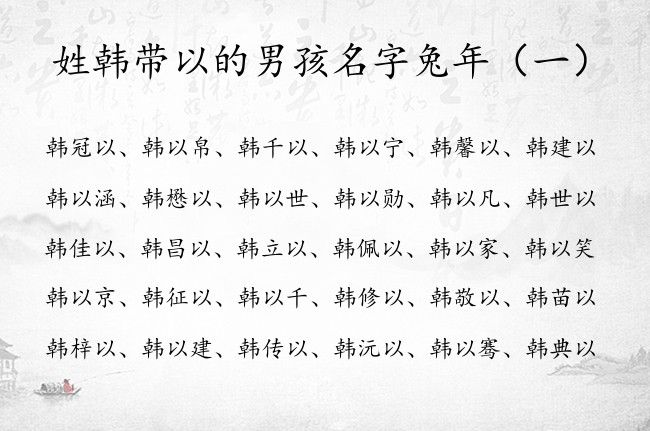 姓韩带以的男孩名字兔年（一）
韩冠以、韩以帛、韩千以、韩以宁、韩馨以、韩建以
韩以涵、韩懋以、韩以世、韩以勋、韩以凡、韩世以
韩佳以、韩昌以、韩立以、韩佩以、韩以家、韩以笑
韩以京、韩征以、韩以千、韩修以、韩敬以、韩苗以
韩梓以、韩以建、韩传以、韩沅以、韩以骞、韩典以